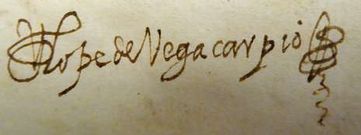 Lope de Vega carpio